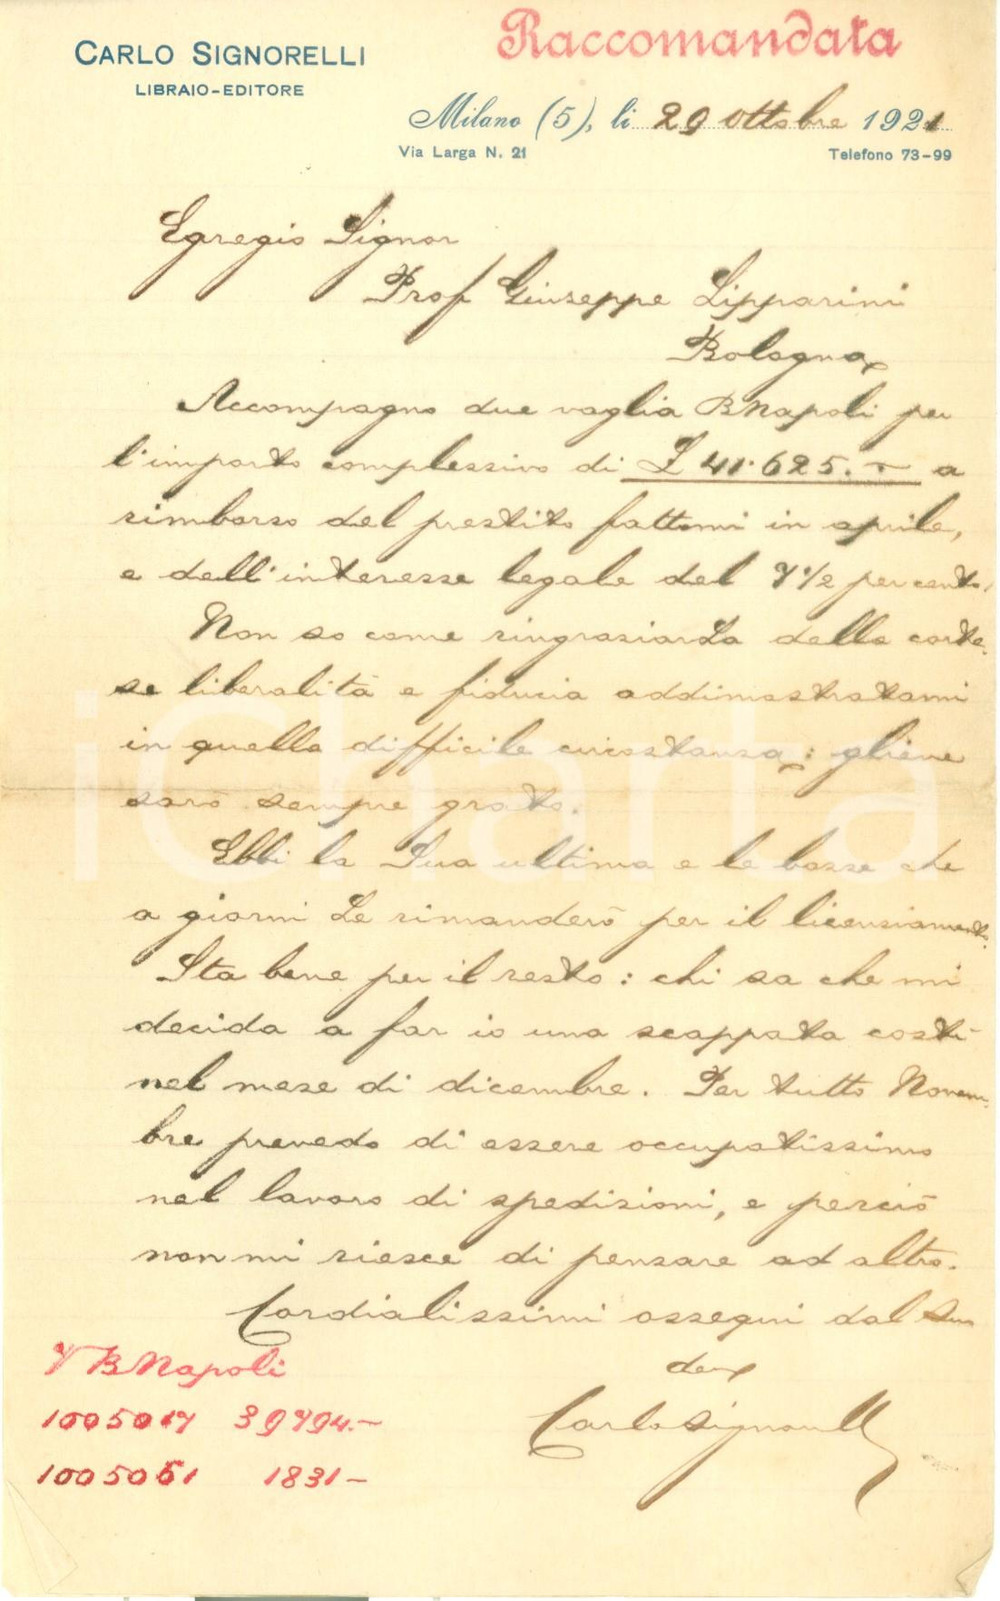 Raccomandata
CARLO SIGNORELLI
LIBRAIO-EDITORE
Milano (5), li 29 Ottobre 1921
Via Larga N. 21
Telefono 73-99
Egregio Signor
Prof Giuseppe Lipparini
Bologna
Accompagno due vaglia BNapoli per
l'importo complessivo di £ 41.625.- a
rimborso del prestito fattomi in aprile,
e dell'interesse legale del 7 1/2 per cento.
Non so come ringraziarLa della corte-
se liberalità e fiducia addimostratami
in quella difficile circostanza: gliene
sarò sempre grato.
Ebbi la Sua ultima e le bozze che
a giorni Le rimanderò per il licenziamento.
Sta bene per il resto: chi sa che mi
decida a far io una scappata costì
nel mese di dicembre. Per tutto Novem-
bre prevedo di essere occupatissimo
nel lavoro di spedizioni, e perciò
non mi riesce di pensare ad altro.
Cordialissimi ossequi dal Suo
dev
Carlo Signorelli
V BNapoli
1005017 39794.-
1005051 1831-
iCharta